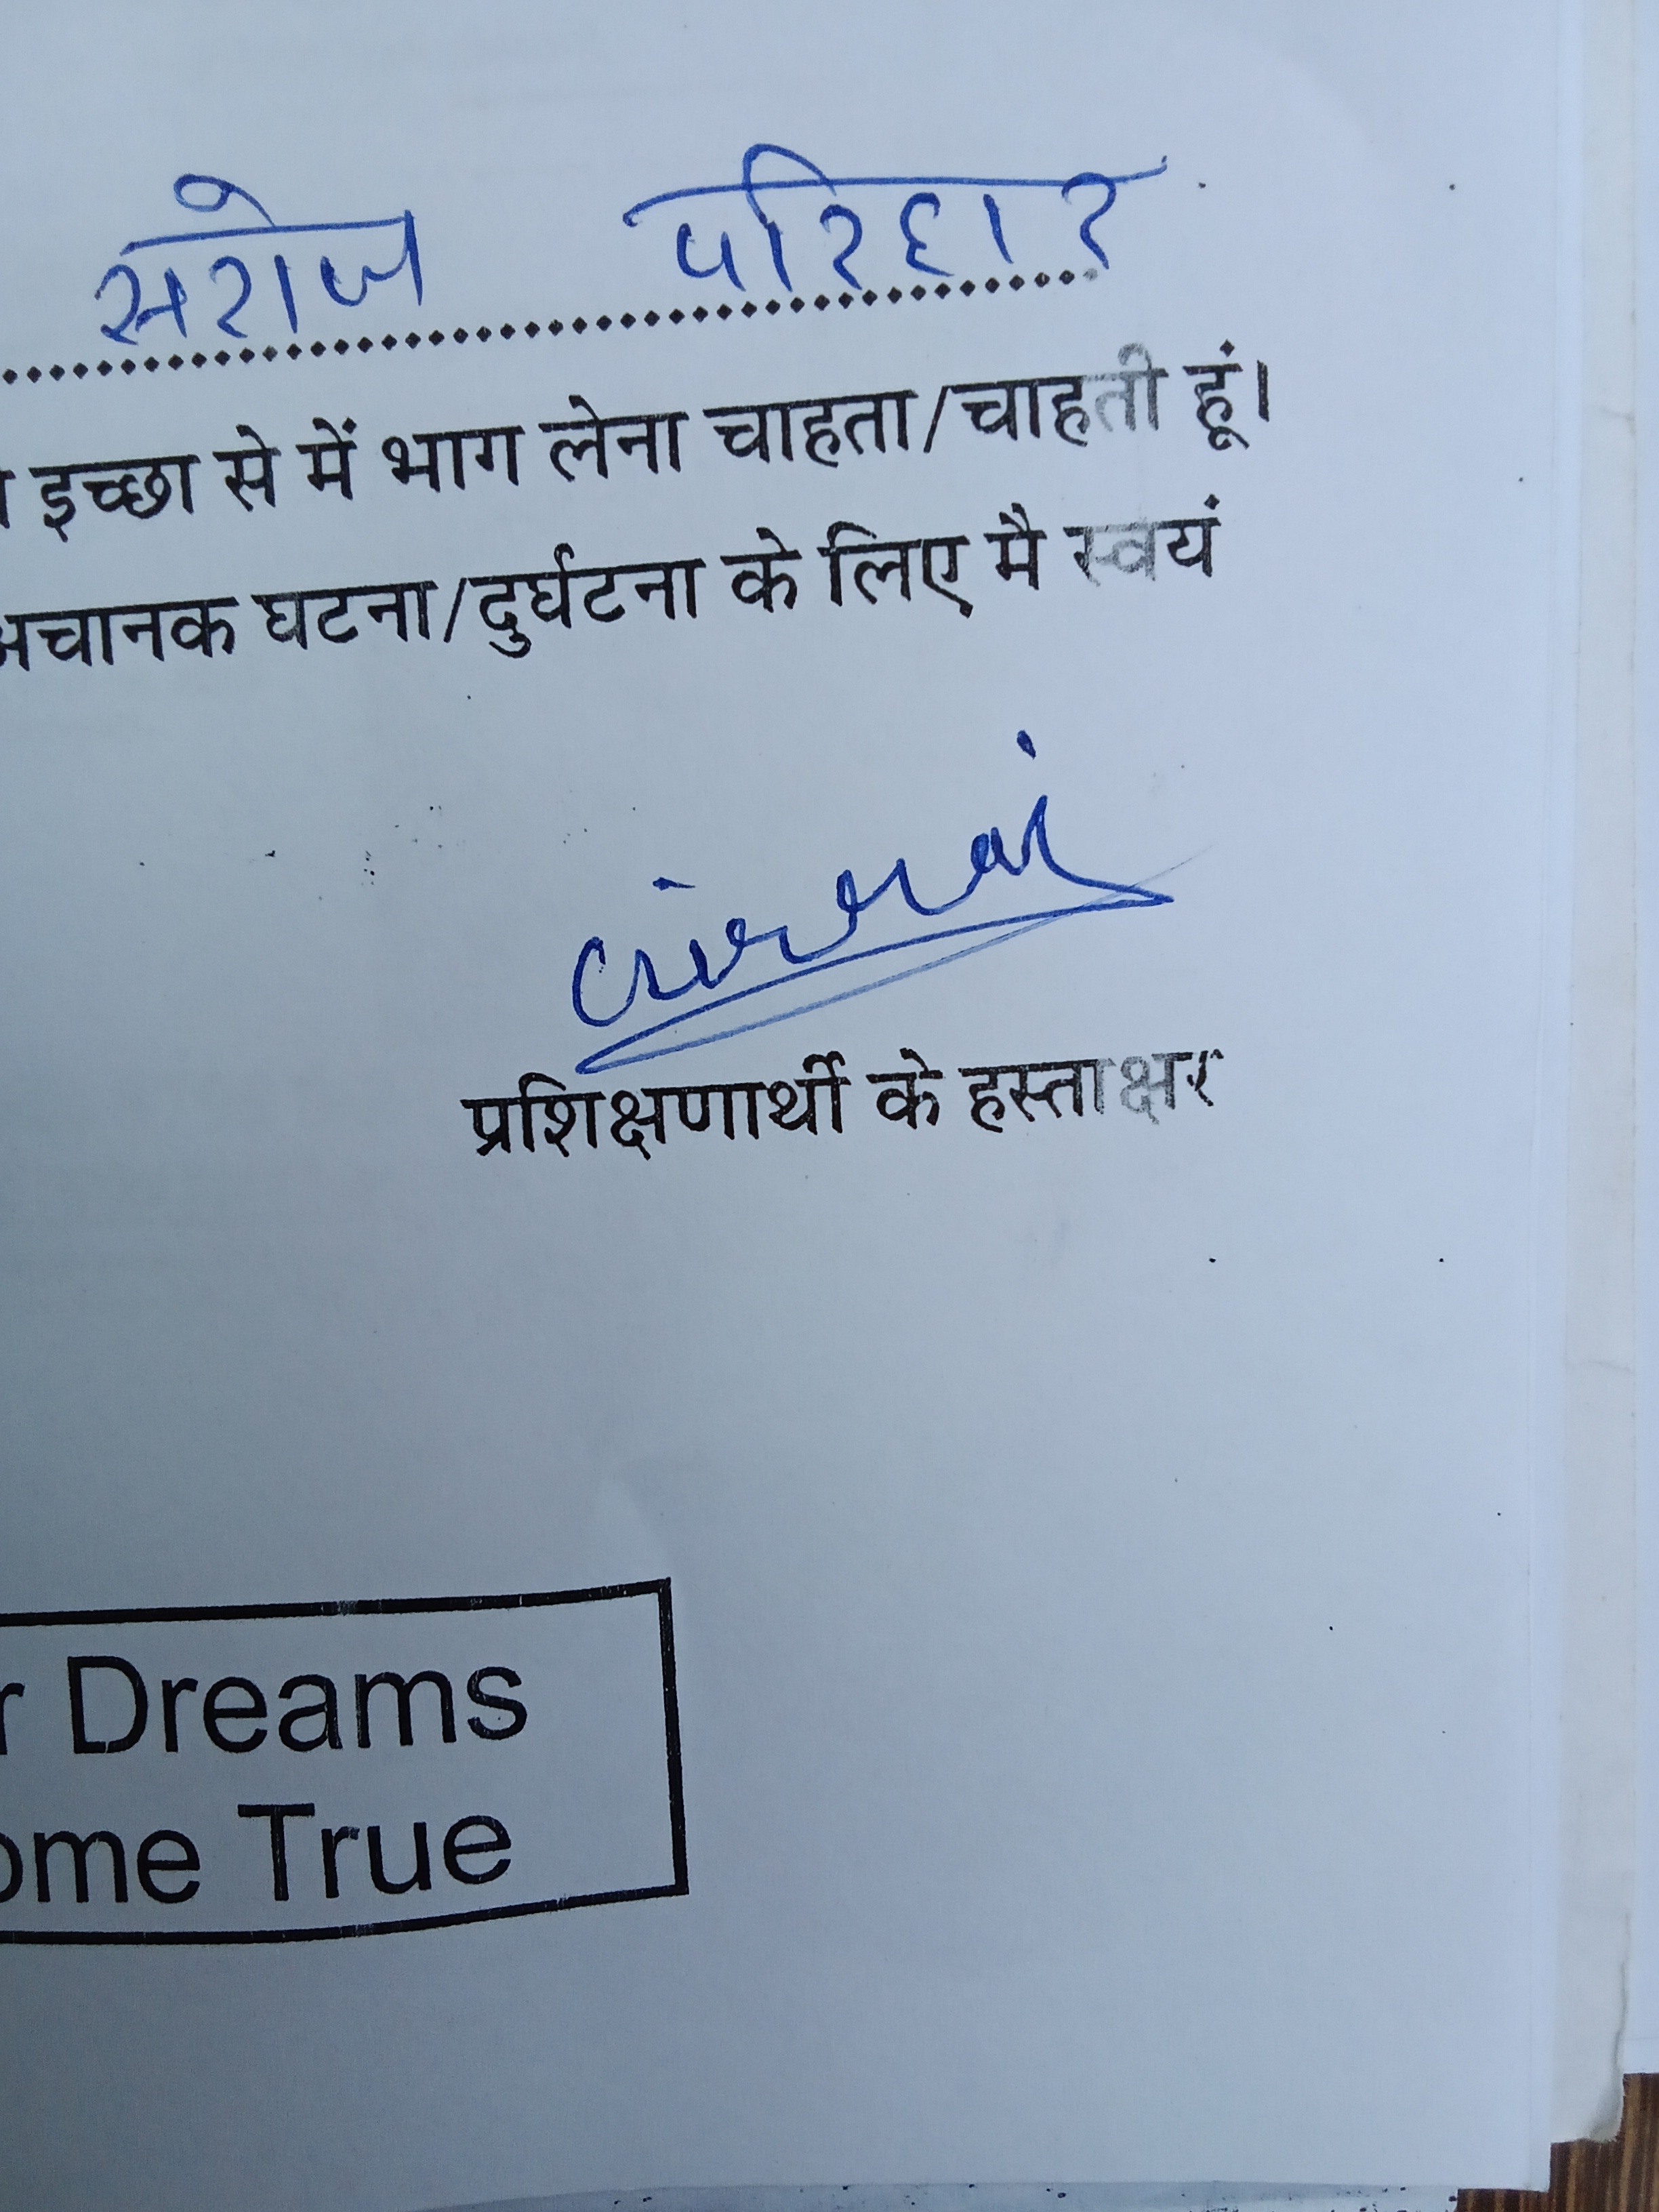 सरोज परिहार
इच्छा से में भाग लेना चाहता/चाहती हूं।
अचानक घटना/दुर्घटना के लिए मै स्वयं
प्रशिक्षणार्थी के हस्ताक्षर
Dreams
ome True